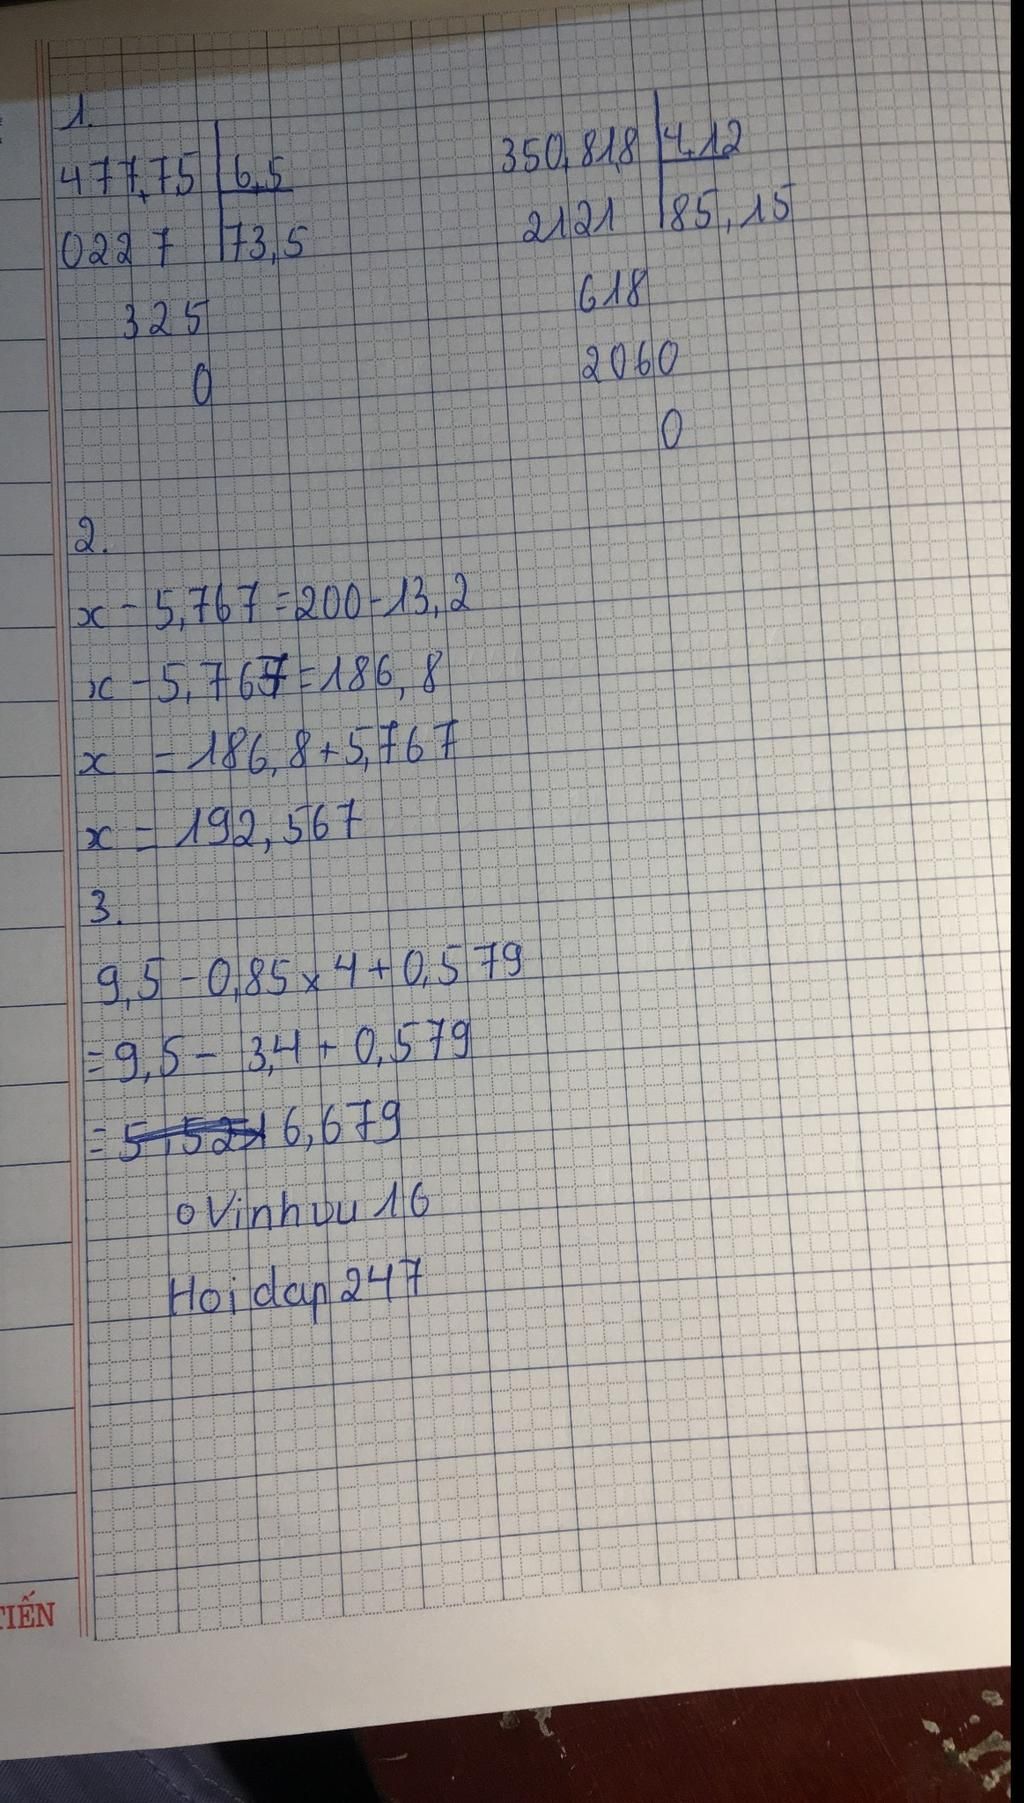 1.
477,75 | 6,5
0227 | 73,5
325
0
350,81,8 | 4,12
2121 | 85,15
618
2060
0
2.
x - 5,767 = 200 - 13,2
x - 5,767 = 186,8
x = 186,8 + 5,767
x = 192,567
3.
9,5 - 0,85 x 4 + 0,579
= 9,5 - 3,4 + 0,579
= 6,679
oVinhuu16
Hoidap247
TIẾN